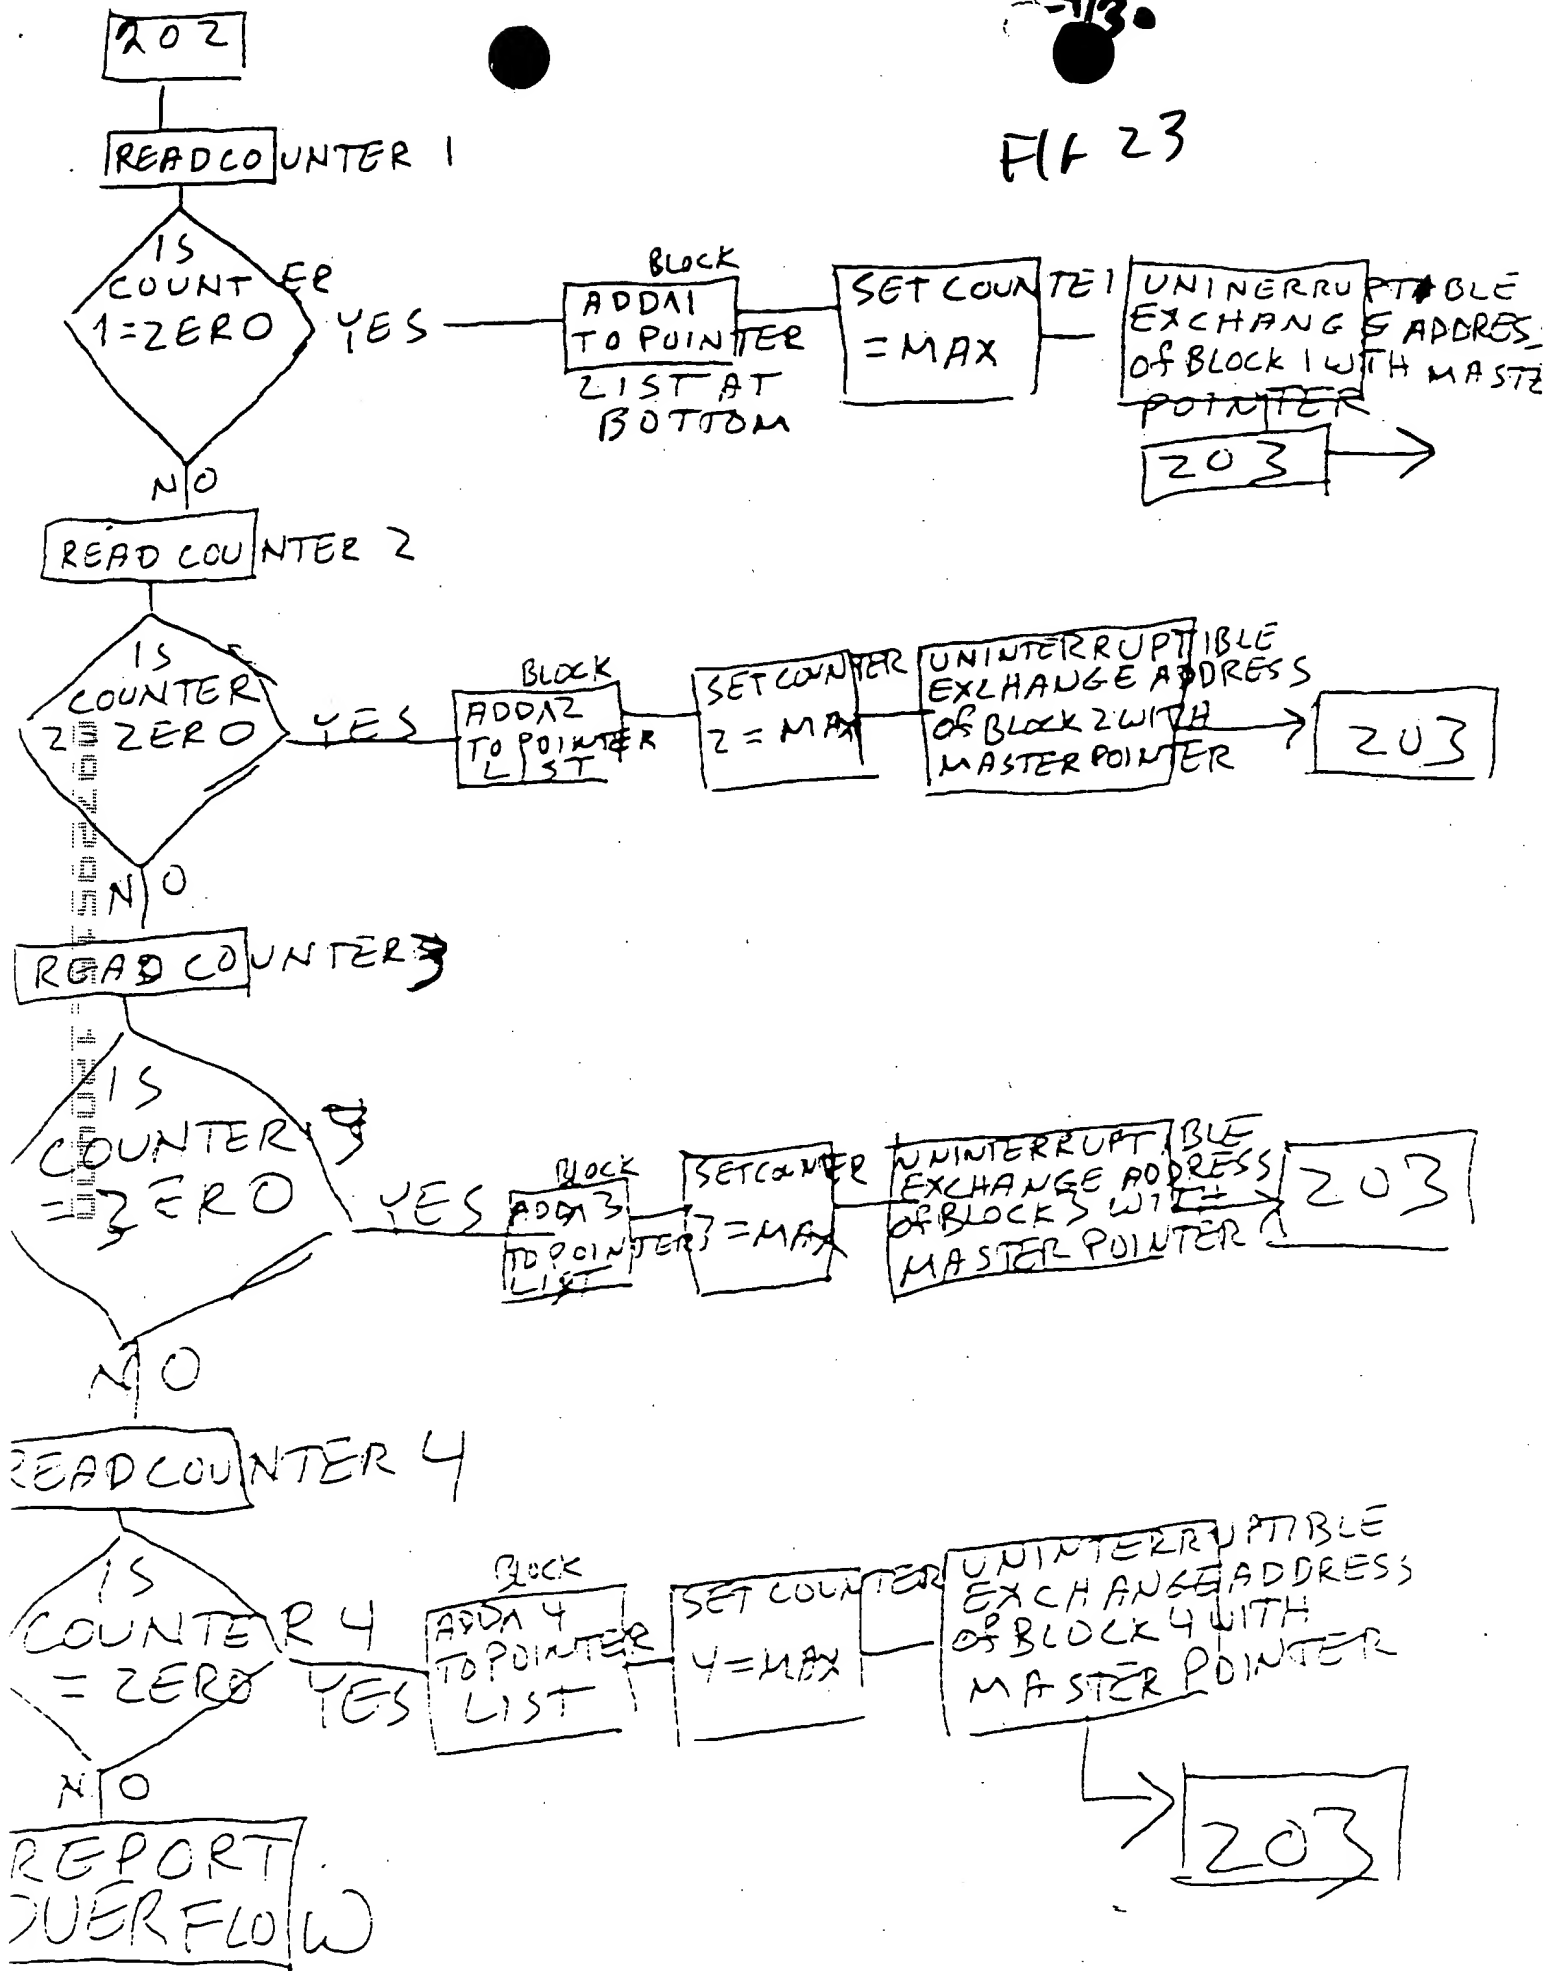 202
FIG 23
READ COUNTER 1
IS
COUNTER
1 = ZERO
YES
BLOCK
ADD 1
TO POINTER
LIST AT
BOTTOM
SET COUNTE 1
= MAX
UNINERRUPTIBLE
EXCHANGE ADDRES
OF BLOCK 1 WITH MASTE
POINTER
203
NO
READ COUNTER 2
IS
COUNTER
2 = ZERO
YES
BLOCK
ADD 2
TO POINTER
LIST
SET COUNTER
2 = MAX
UNINTERRUPTIBLE
EXCHANGE ADDRESS
OF BLOCK 2 WITH
MASTER POINTER
203
NO
READ COUNTER 3
IS
COUNTER 3
= ZERO
YES
BLOCK
ADD 3
TO POINTER
LIST
SET COUNTER
3 = MAX
UNINTERRUPTIBLE
EXCHANGE ADDRESS
OF BLOCK 3 WITH
MASTER POINTER
203
NO
READ COUNTER 4
IS
COUNTER 4
= ZERO
YES
BLOCK
ADD 4
TO POINTER
LIST
SET COUNTER
4 = MAX
UNINTERRUPTIBLE
EXCHANGE ADDRESS
OF BLOCK 4 WITH
MASTER POINTER
203
NO
REPORT
OVERFLOW